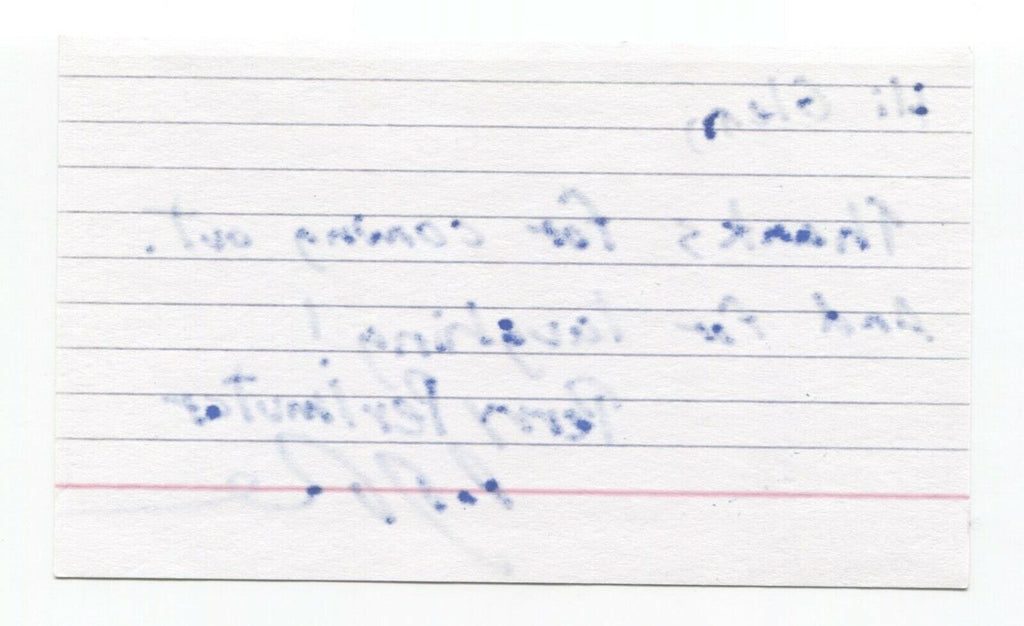 Hi Glen,
Thanks for coming out.
And for laughing!
Perry Perlmutar